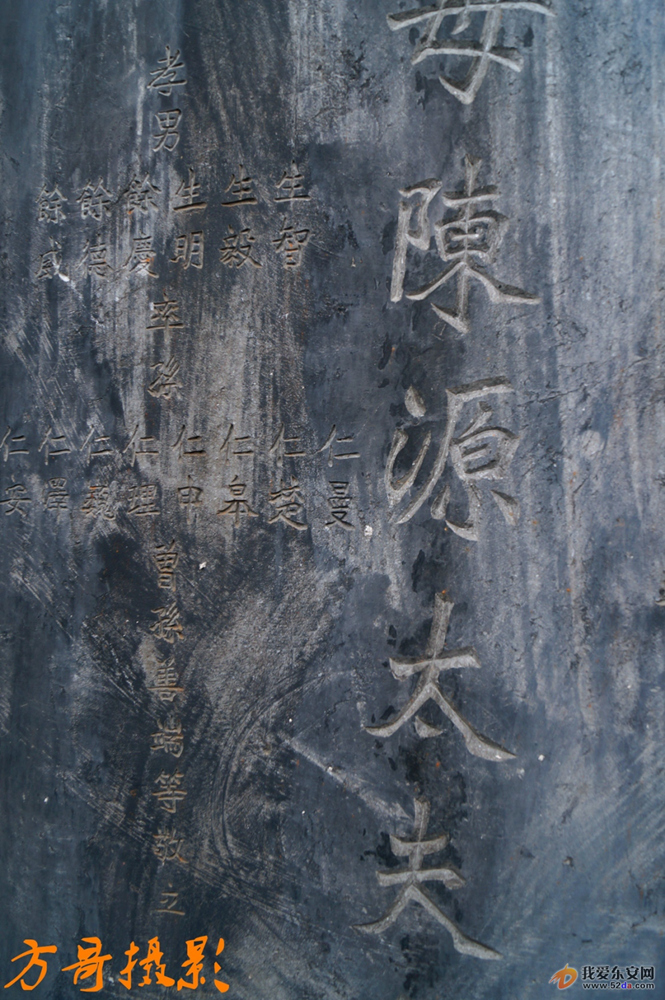 母陳源太夫
孝男
生智
生毅
生明
餘慶
餘德
餘威
率孫
仁曼
仁楚
仁皋
仁申
仁理
仁巍
仁澤
仁安
曾孫善端等敬立
方哥摄影
我爱东安网
www.52da.com